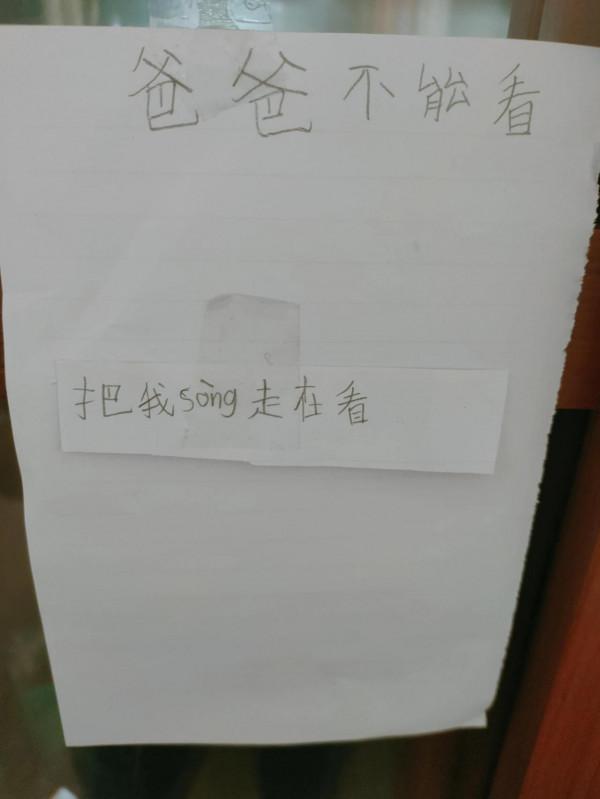 爸爸不能看
把我sòng走在看